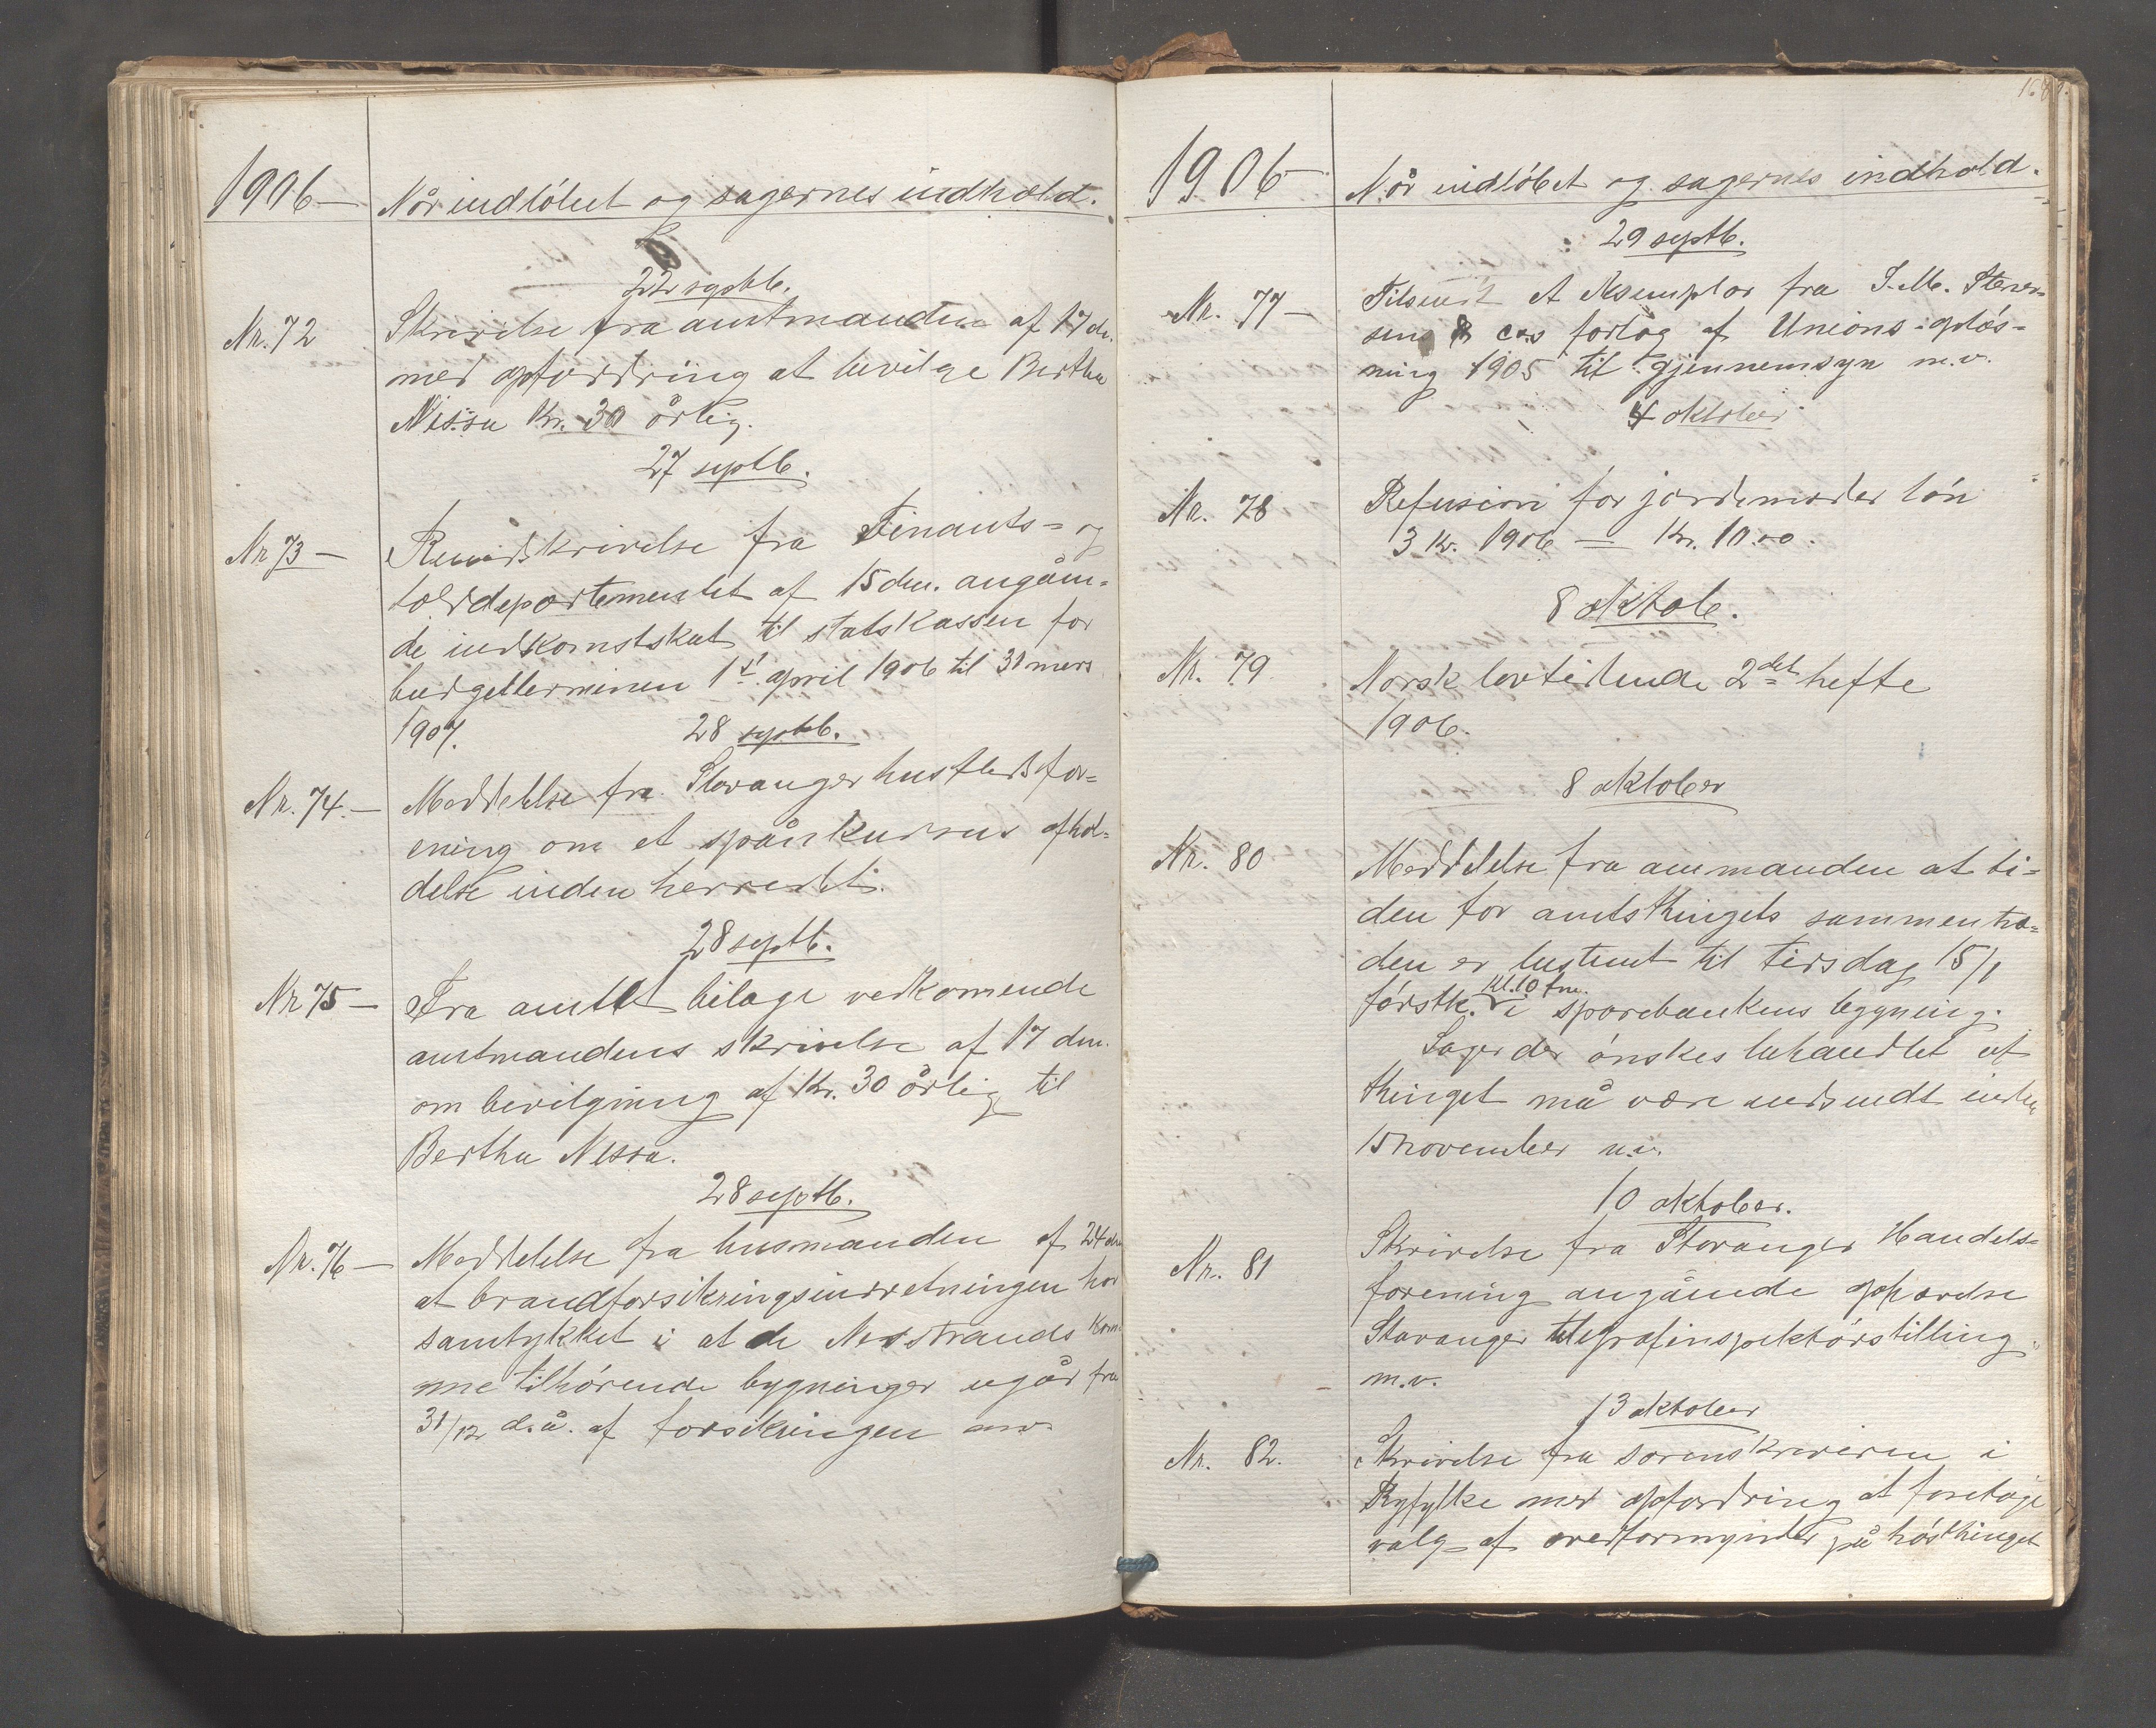 1906 — Når indløbet og sagernes indhold.
22 septb.
Nr. 72 Skrivelse fra amtmanden af 17 ds.
med opfordring at bevilge Bertha
Nessa Kr. 30 årlig.
27 septb.
Nr 73 — Rundskrivelse fra Finants- og
tolddepartementet af 15 dm. angåen-
de indkomstskat til statskassen for
budgetterminen 1st april 1906 til 31 mars
1907.
28 septb.
Nr. 74. — Meddelelse fra Stavanger husflidsfor-
ening om et spånkursus afhol-
delse inden herredet.
28 septb.
Nr 75 — Fra amtet bilage vedkomende
amtmandens skrivelse af 17 dm.
om bevilgning af Kr. 30 årlig til
Bertha Nessa.
28 septb.
Nr. 76 — Meddelelse fra lensmanden af 24 dm
at brandforsikringsindretningen har
samtykket i at de Nerstrands kom-
mne tilhørende bygninger ugår fra
31/12 d.å. af forsikringen mv.
1906 — Når indløbet og sagernes indhold.
29 septb.
Nr. 77 — Tilsendt et eksemplar fra J. M. Stener-
sens & co.s forlag af Unions-opløs-
ning 1905 til gjennemsyn m.v.
4 oktober
Nr. 78 Refusion for jordemoder løn
3 kv. 1906 — Kr. 10.00.
8 oktob.
Nr. 79. Norsk lovtidende 2det hefte
1906.
8 oktober
Nr. 80 Meddelelse fra ammanden at ti-
den for amtsthingets sammentræ-
den er bestemt til tirsdag 15/1
kl. 10 fm.
førstk. i sparebankens bygning.
Sager der ønskes behandlet af
thinget må være indsendt inden
15 november n.v.
10 oktober.
Nr. 81 Skrivelse fra Stavanger Handels-
forening angående ophævelse
Stavanger telegrafinspektørstilling
m.v.
13 oktober
Nr. 82. Skrivelse fra sorenskriveren i
Ryfylke med opfordring at foretage
valg af overformynder på høstthinget